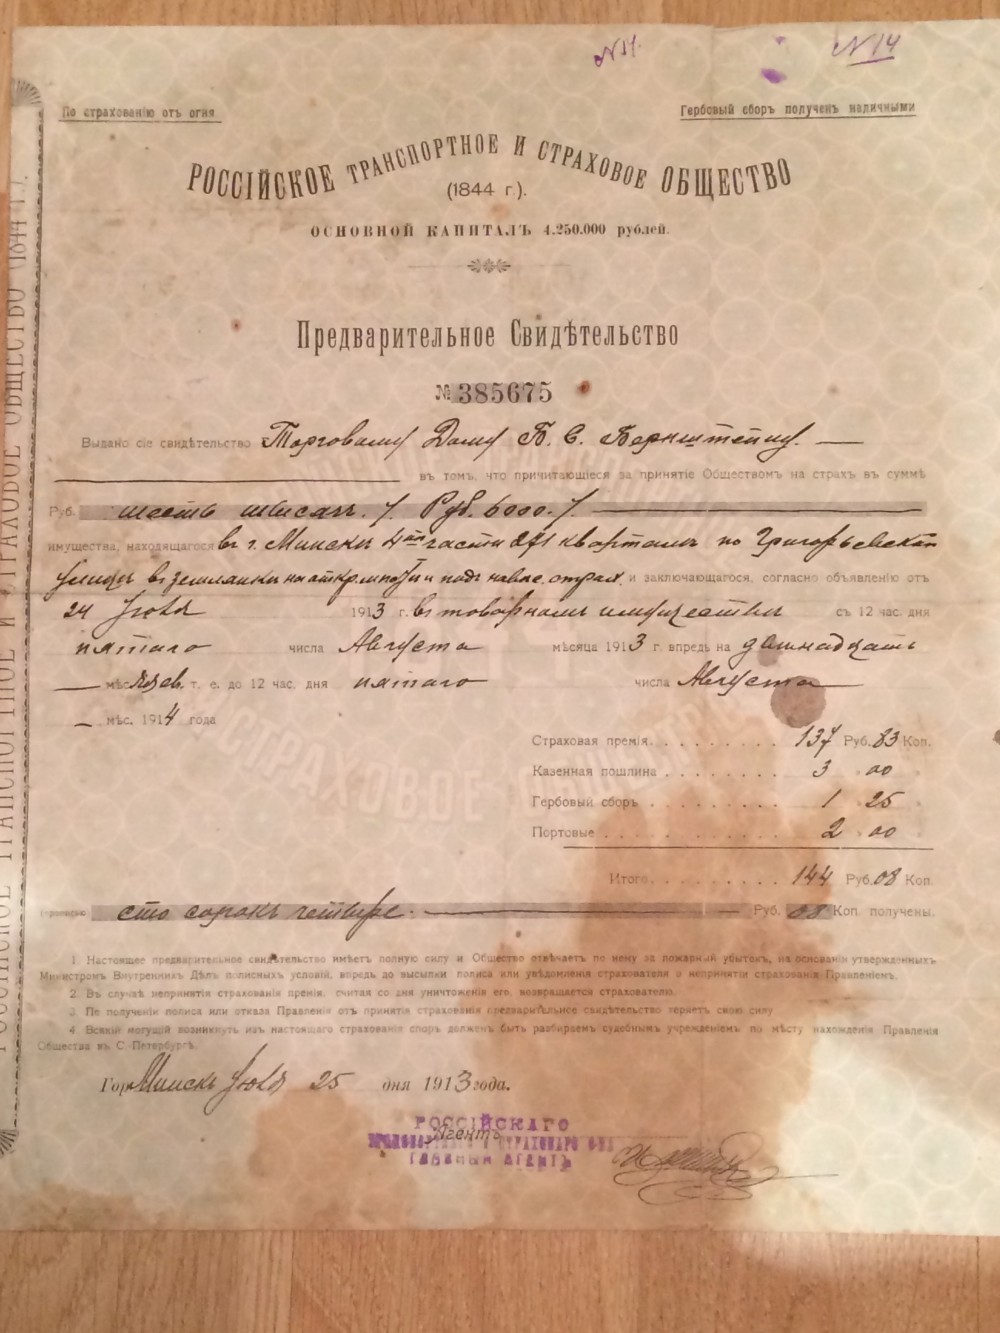 N 14.
N 14
По страхованію отъ огня
Гербовый сборъ полученъ наличными
РОССІЙСКОЕ ТРАНСПОРТНОЕ И СТРАХОВОЕ ОБЩЕСТВО
(1844 г.).
ОСНОВНОЙ КАПИТАЛЪ 4.250.000 рублей.
Предварительное Свидѣтельство
№ 385675
Выдано сіе свидѣтельство Торговому Дому Б. С. Бернштейну.
въ томъ, что причитающіеся за принятіе Обществомъ на страхъ въ суммѣ
Руб. шесть тысячъ /. Руб. 6000. /
имущества, находящагося въ г. Минскѣ 4ой части 271 кварталъ по Григорьевской
улицѣ въ землянкѣ на и подъ и заключающагося, согласно объявленію отъ
24 Іюля 1913 г. въ товарномъ имуществѣ съ 12 час. дня
пятаго числа Августа мѣсяца 1913 г. впредь на двѣнадцать
мѣсяцев. т. е. до 12 час. дня пятаго числа Августа
мѣс. 1914 года
Страховая премія. . . . . . . . . 137 Руб. 83 Коп.
Казенная пошлина . . . . . . . . 3 00
Гербовый сборъ . . . . . . . . . 1 25
Портовые . . . . . . . . . . . . 2 00
Итого. . . . . . . . . 144 Руб. 08 Коп.
сто сорокъ четыре. Руб. 08 Коп. получены.
1. Настоящее предварительное свидѣтельство имѣетъ полную силу и Общество отвѣчаетъ по нему за пожарный убытокъ, на основаніи утвержденныхъ
Министромъ Внутреннихъ Дѣлъ полисныхъ условій, впредь до высылки полиса или увѣдомленія страхователя о непринятіи страхованія Правленіемъ.
2. Въ случаѣ непринятія страхованія премія, считая со дня уничтоженія его, возвращается страхователю.
3. По полученіи полиса или отказа Правленія отъ принятія страхованія предварительное свидѣтельство теряетъ свою силу.
4. Всякій могущій возникнуть изъ настоящаго страхованія споръ долженъ быть разбираемъ судебнымъ учрежденіемъ по мѣсту нахожденія Правленія
Общества въ С.-Петербургѣ.
Гор. Минскъ Іюля 25 дня 1913 года.
РОССІЙСКАГО
Агентъ
ГЛАВНЫЙ АГЕНТЪ
РОССІЙСКОЕ ТРАНСПОРТНОЕ И СТРАХОВОЕ ОБЩЕСТВО (1844 г.).
СТРАХОВОЕ ОБЩЕСТВО